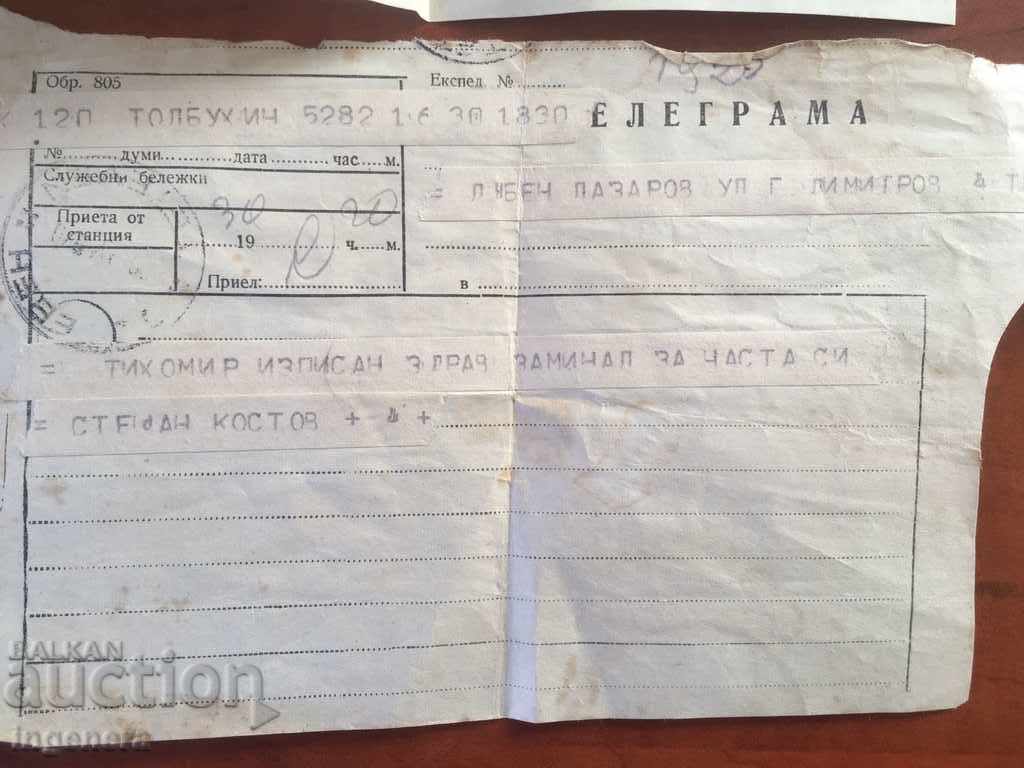 Обр. 805
Експед. №
12П ТОЛБУХИН 5282 16 30 1830
ЕЛЕГРАМА
№ думи дата час м.
Служебни бележки
= ЛЮБЕН ЛАЗАРОВ УЛ Г ДИМИТРОВ 4
30 20
Приета от
станция
19 ч. м.
Приел:
в
= ТИХОМИР ИЗПИСАН ЗДРАВ ЗАМИНАЛ ЗА ЧАСТА СИ
= СТЕФАН КОСТОВ + 4 +
BALKAN
auction
ingenera